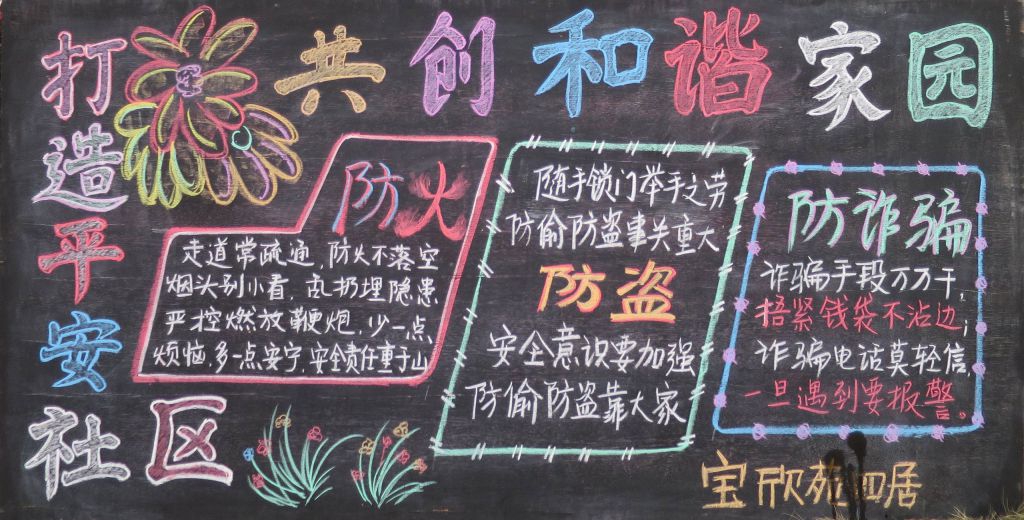 打造平安社区
共创和谐家园
防火
走道常疏通,防火不落空
烟头别小看,乱扔埋隐患
严控燃放鞭炮,少一点
烦恼,多一点安宁,安全责任重于山
随手锁门举手之劳
防偷防盗事关重大
防盗
安全意识要加强
防偷防盗靠大家
防诈骗
诈骗手段万万千,
捂紧钱袋不沾边;
诈骗电话莫轻信
一旦遇到要报警。
宝欣苑四居